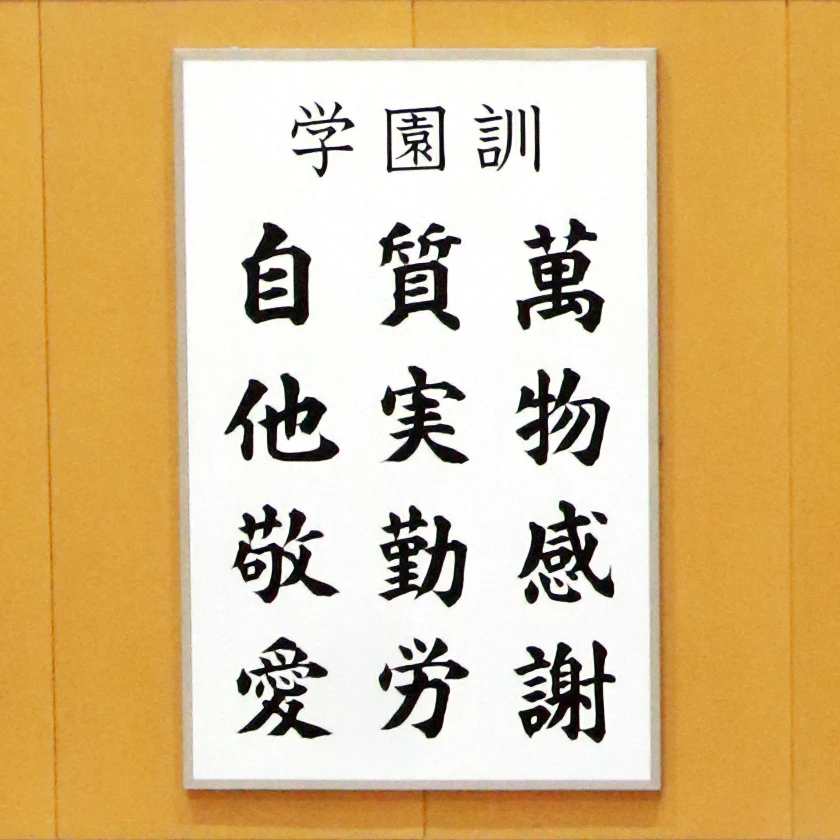 学園訓
萬物感謝
質実勤労
自他敬愛